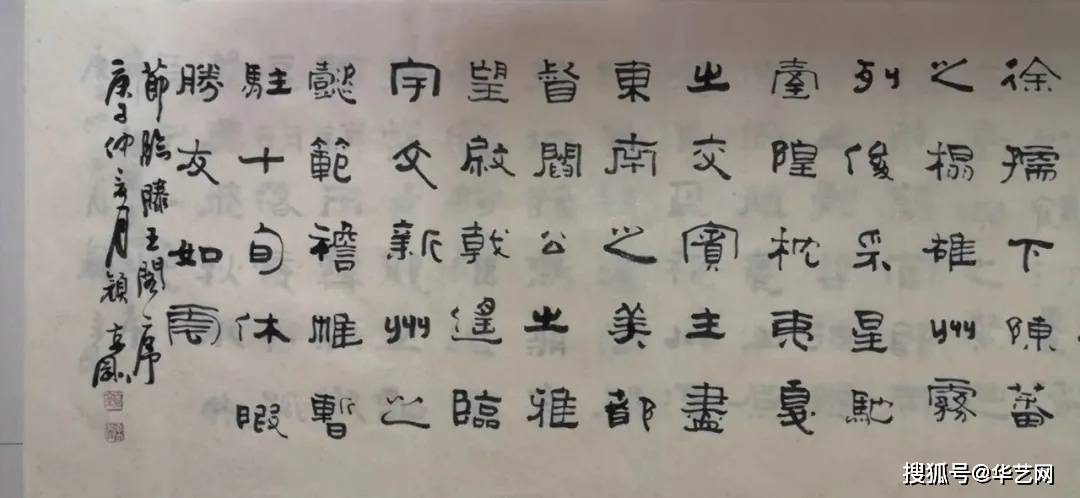 徐孺下陳蕃
之榻雄州霧
列俊采星馳
臺隍枕夷夏
之交賓主盡
東南之美都
督閻公之雅
望棨戟遙臨
宇文新州之
懿範襜帷暫
駐十旬休暇
勝友如雲
節臨滕王閣序
庚子仲月
搜狐号@华艺网